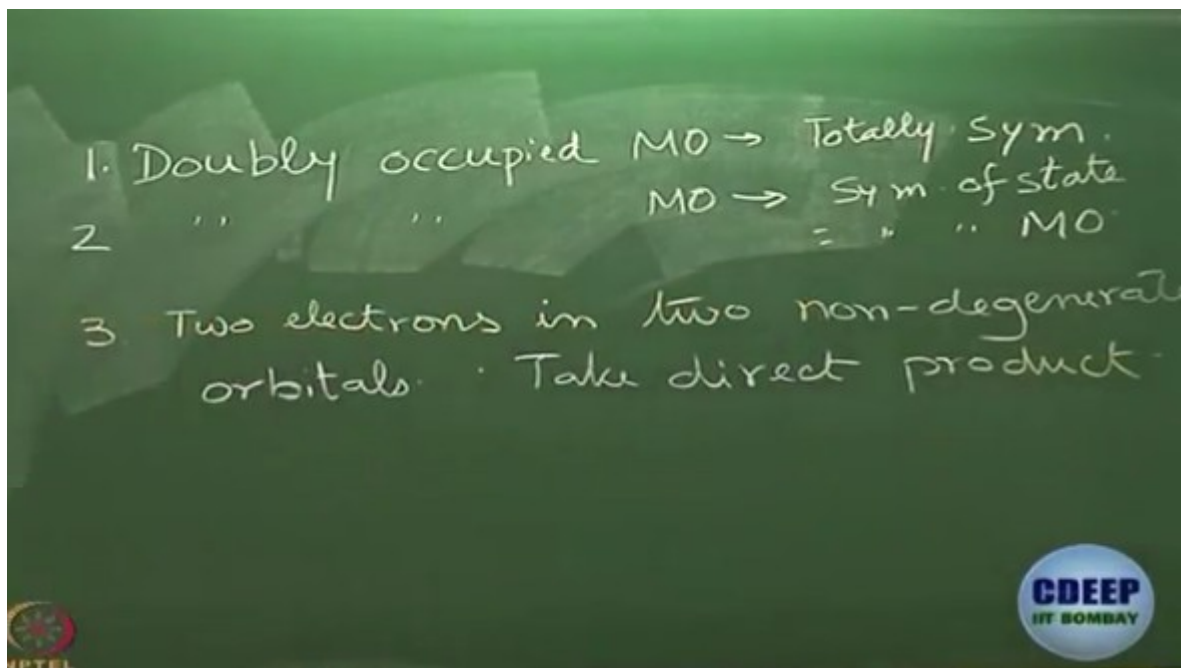 1. Doubly occupied MO → Totally Sym.
2 ,, ,, MO → Sym. of state
= ,, ,, MO
3. Two electrons in two non-degenerate
orbitals. Take direct product
CDEEP
IIT BOMBAY
NPTEL